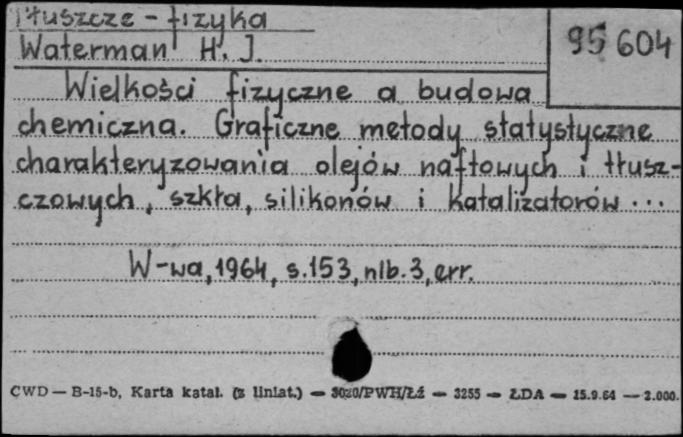 Tłuszcze - fizyka
Waterman H. J.
95 604
Wielkości fizyczne a budowa
chemiczna. Graficzne metody statystyczne
charakteryzowania olejów naftowych i tłusz-
czowych, szkła, silikonów i katalizatorów ...
W-wa, 1964, s. 153, nlb. 3, err.
CWD — B-15-b, Karta katal. (z liniat.) — 3020/PWH/Łź — 3255 — ŁDA — 15.9.64 — 2.000.